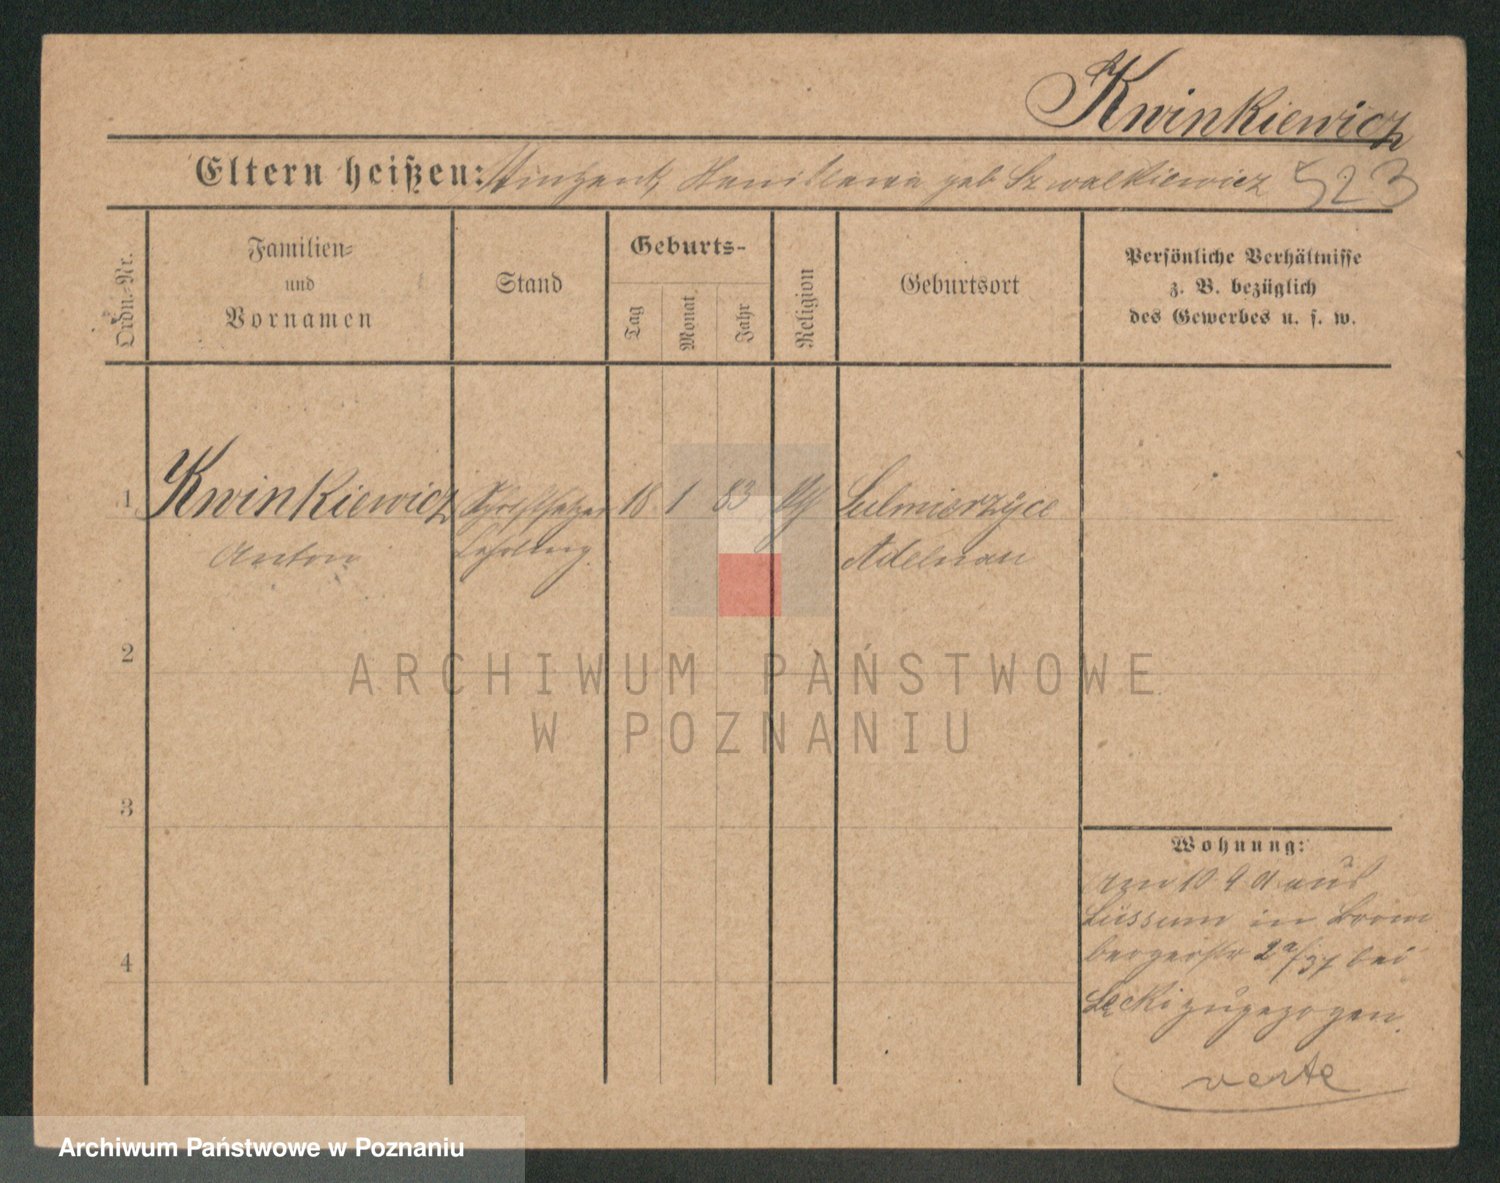 Kwinkiewicz
Eltern heißen: Vinzent, Stanislawa geb Szwalkiewicz 523
Ordn.-Nr.
Familien-
und
Vornamen
Stand
Geburts-
Tag
Monat
Jahr
Religion
Geburtsort
Persönliche Verhältnisse
z. B. bezüglich
des Gewerbes u. s. w.
1 Kwinkiewicz Schriftsetzer 18 1 83 Sulmierzyce
Anton Lehrling Adelnau
2
ARCHIWUM PAŃSTWOWE
W POZNANIU
3
4
Wohnung:
am 10 4 01 aus
Lüssum in Brom
bergerstr 2a/37 bei
Łęcki zugezogen.
verte
Archiwum Państwowe w Poznaniu